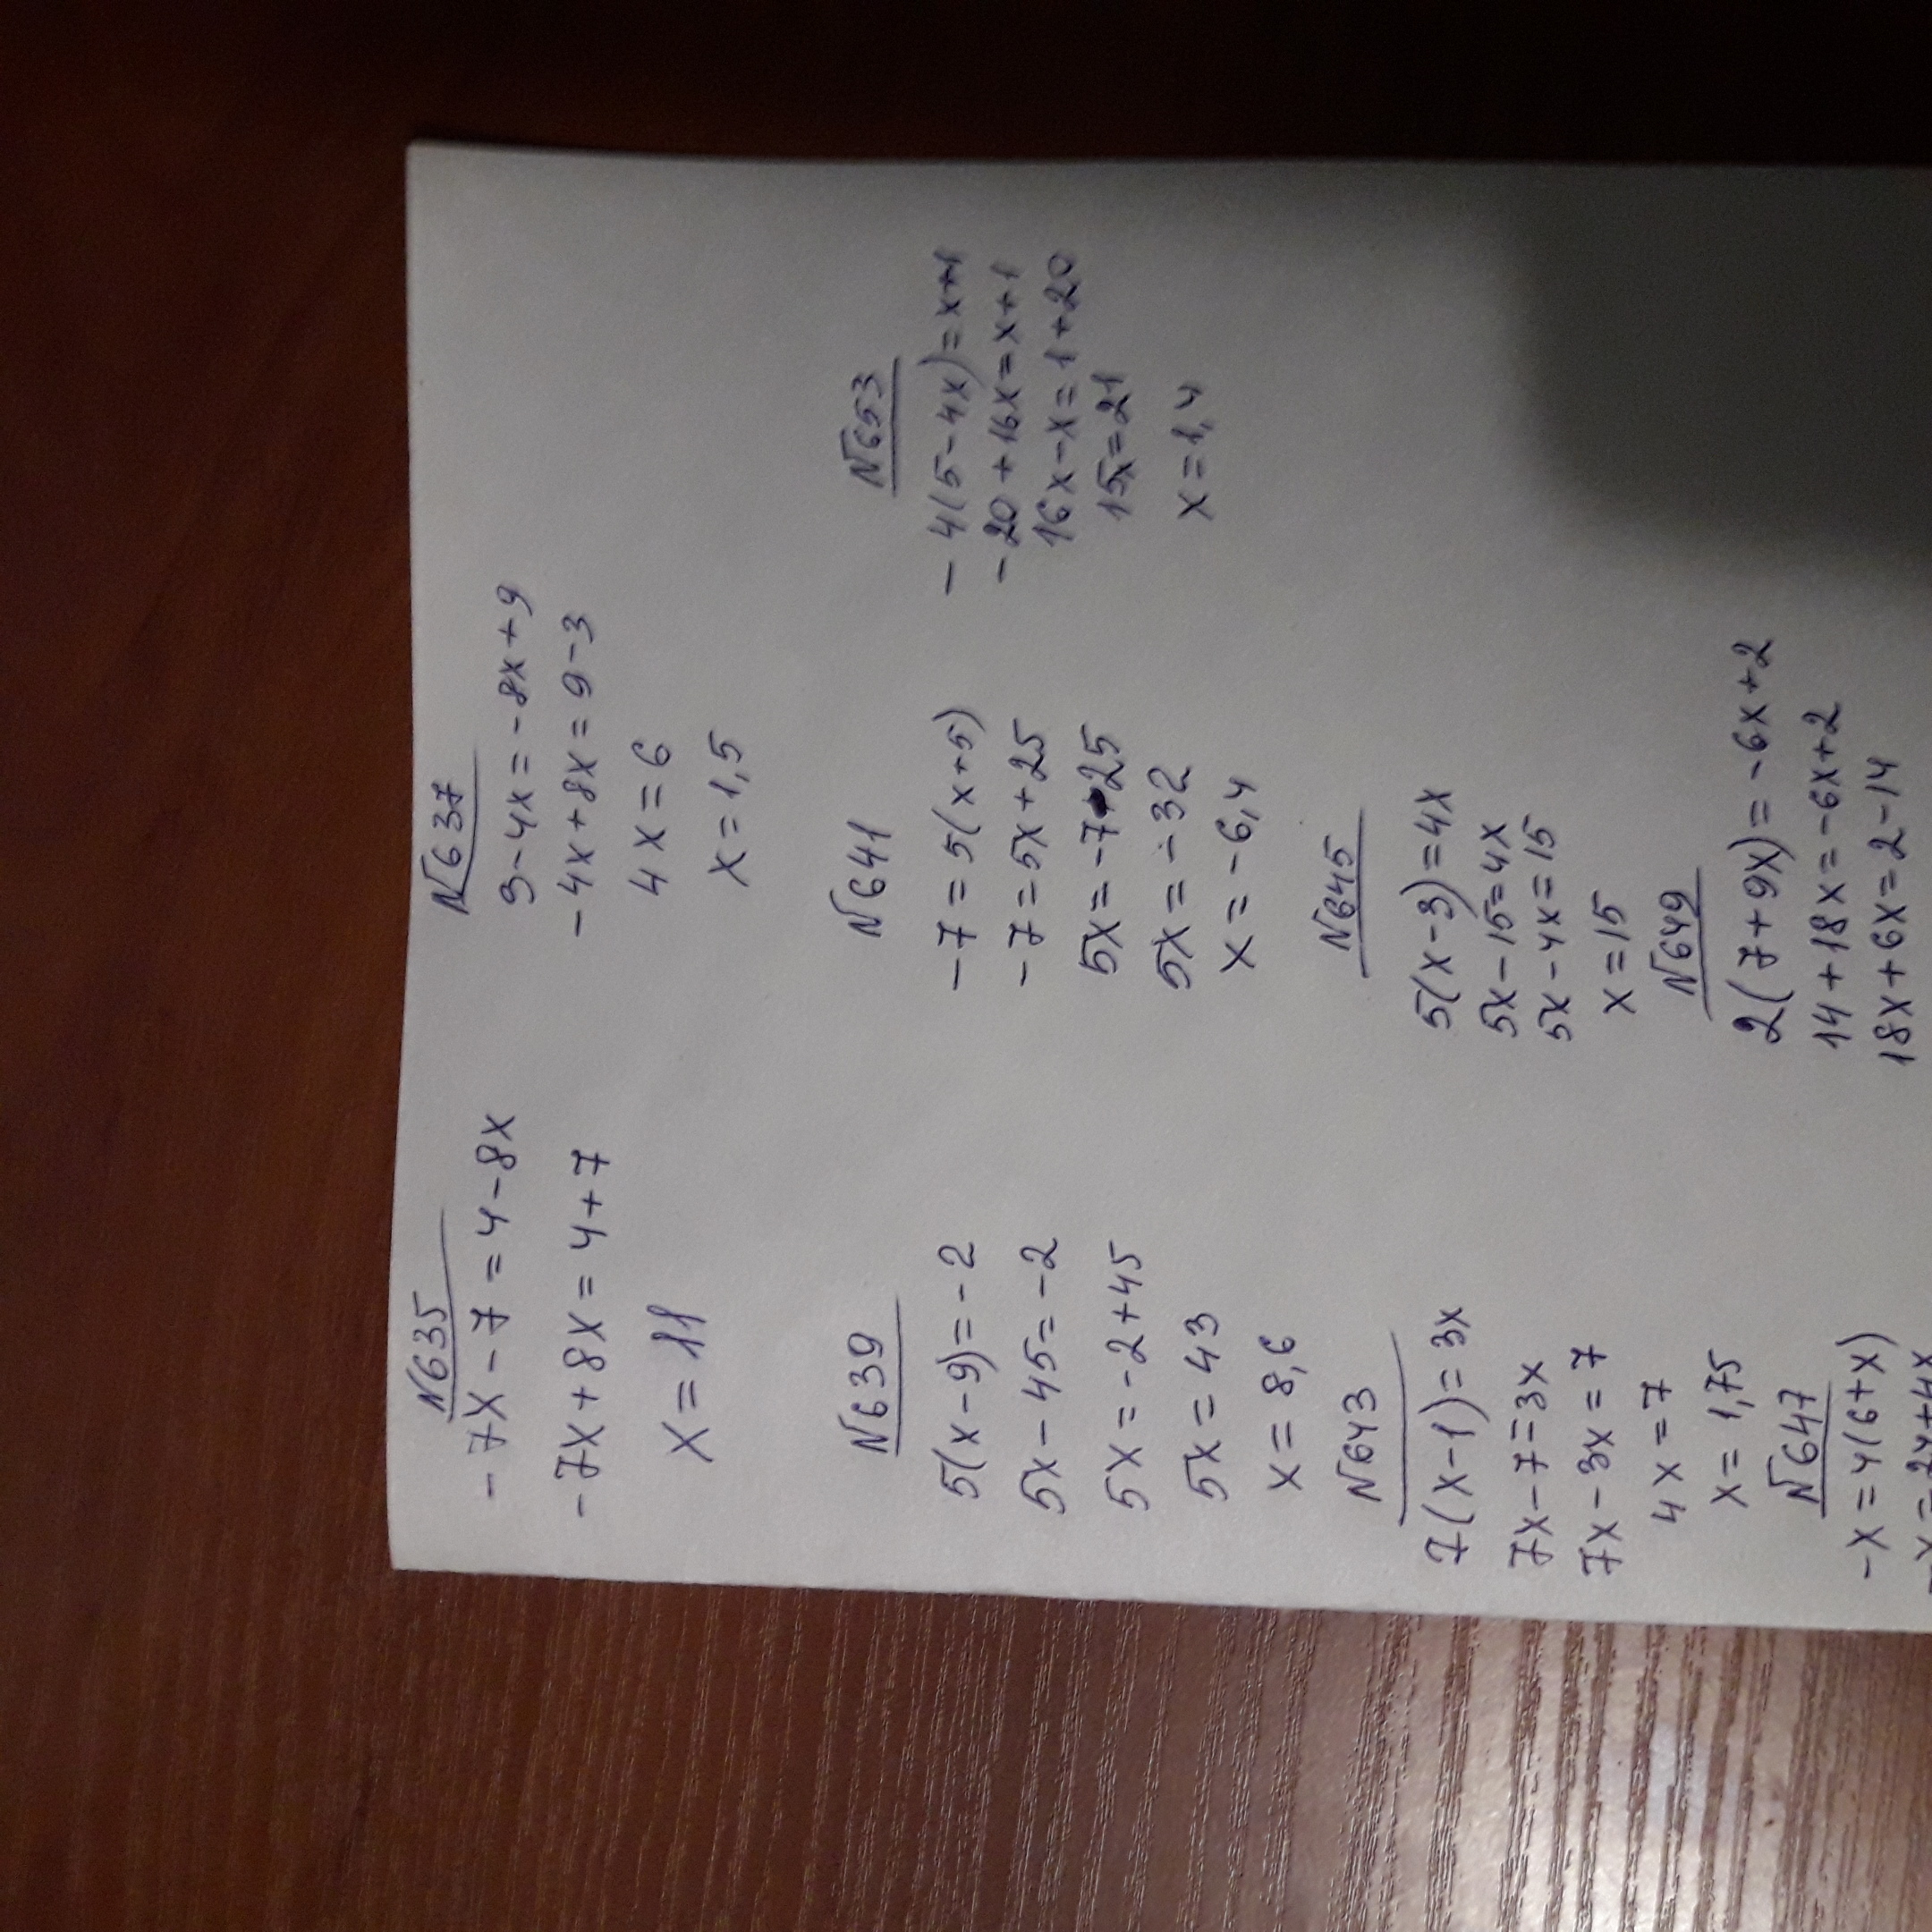 №635
-7x-7=4-8x
-7x+8x=4+7
x=11
№637
3-4x=-8x+9
-4x+8x=9-3
4x=6
x=1,5
№639
5(x-9)=-2
5x-45=-2
5x=-2+45
5x=43
x=8,6
№641
-7=5(x+5)
-7=5x+25
5x=-7-25
5x=-32
x=-6,4
№653
-4(5-4x)=x+1
-20+16x=x+1
16x-x=1+20
15x=21
x=1,4
№643
7(x-1)=3x
7x-7=3x
7x-3x=7
4x=7
x=1,75
№645
5(x-3)=4x
5x-15=4x
5x-4x=15
x=15
№647
-x=4(6+x)
-x=24+4x
№649
2(7+9x)=-6x+2
14+18x=-6x+2
18x+6x=2-14